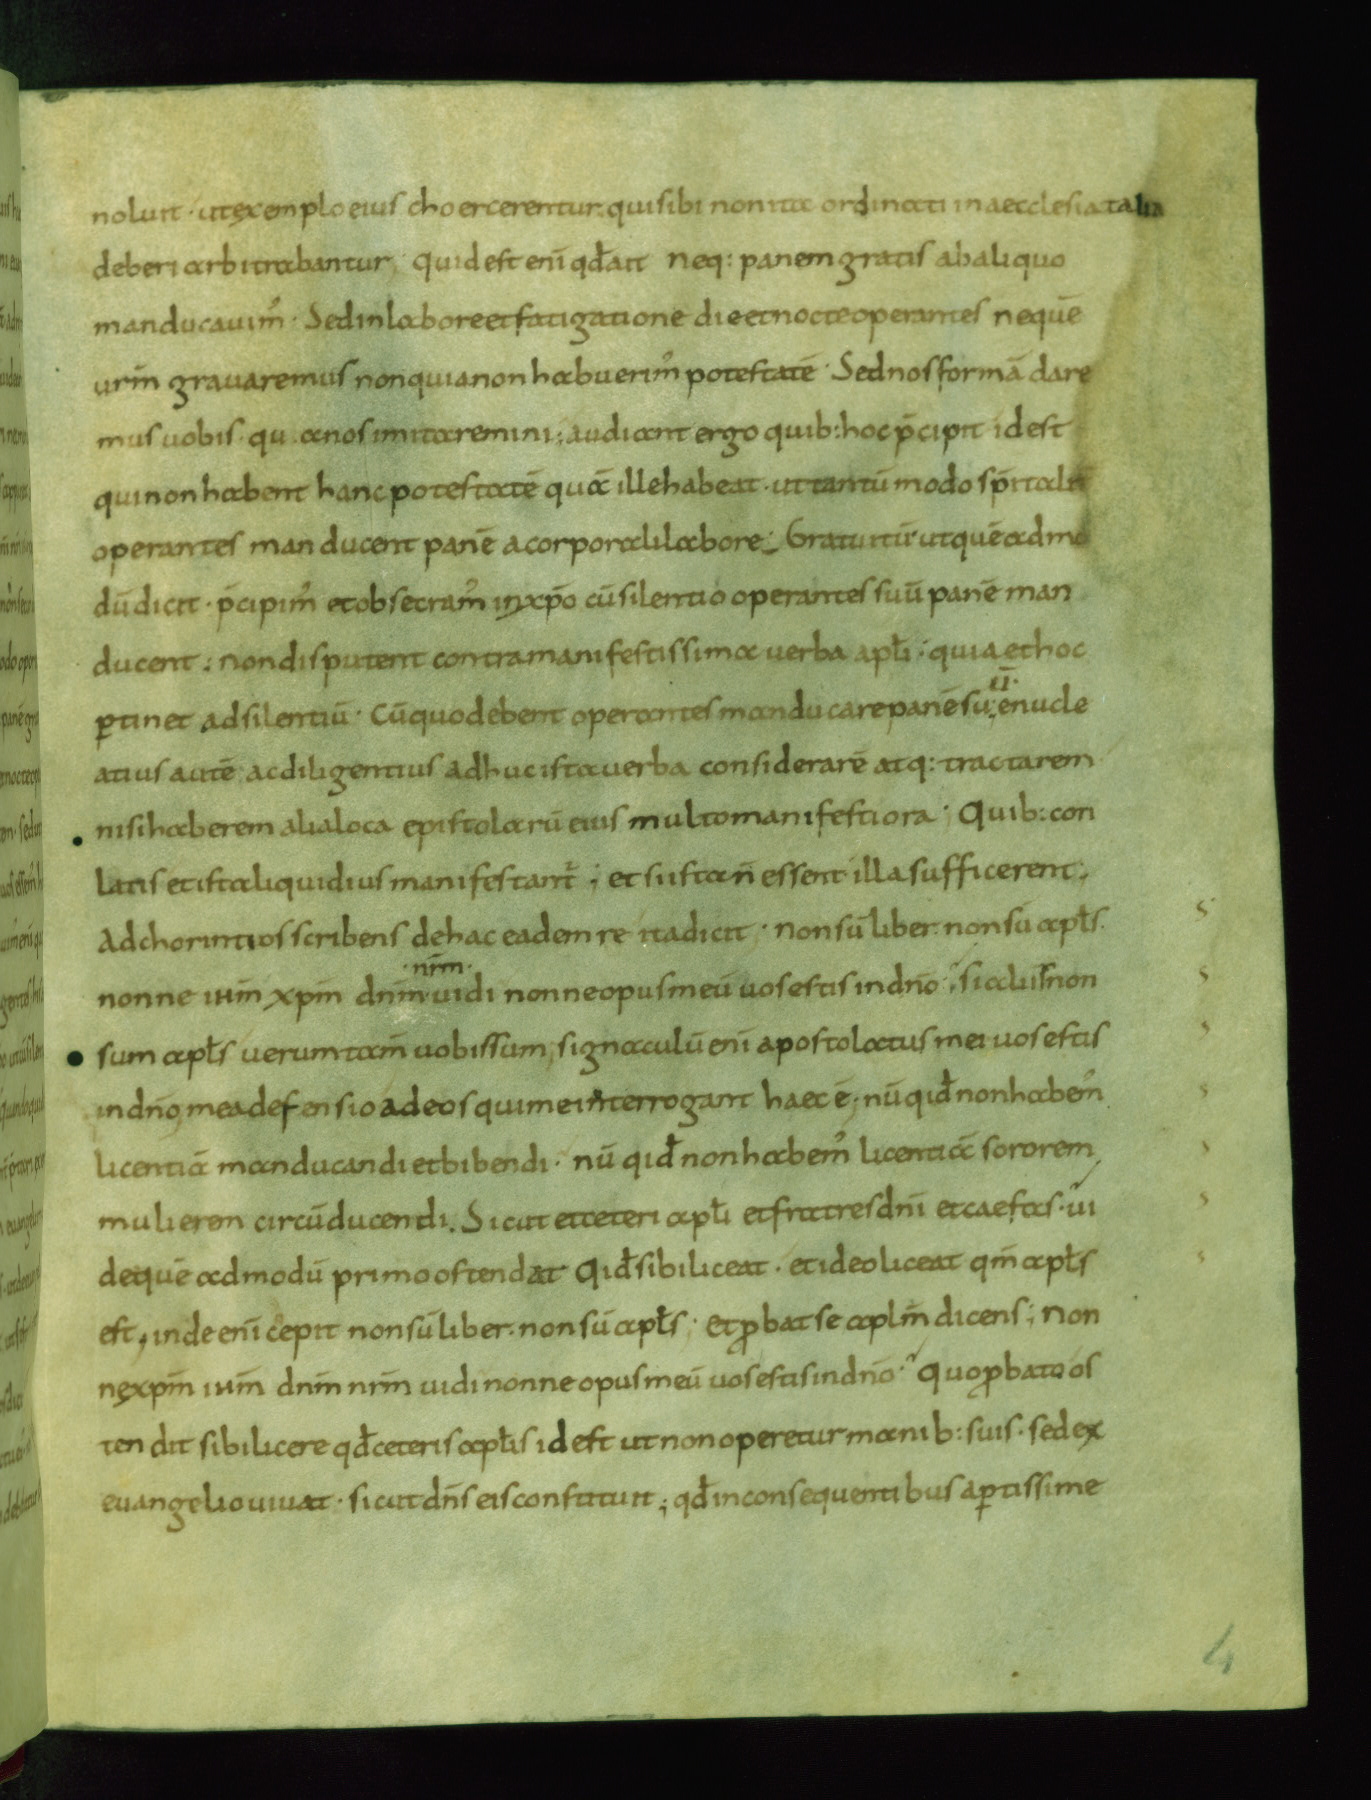 noluit · ut exemplo eius choercerentur qui sibi non ita ordinati in aecclesia talia
deberi arbitrabantur; quid est enī qđ ait neq: panem gratis ab aliquo
manducauim᾿ · Sed in labore et fatigatione die et nocte operantes ne quē
urm̄ grauaremus non quia non habuerim᾿ potestatē · Sed nos formā dare
mus uobis · qu a nos imitaremini; audiant ergo quib: hoc p̄cipit id est
qui non habent hanc potestatē quā ille habeat · ut tantū modo sp̄italit̄
operantes manducent panē a corporali labore; Gratuitū ut quē ad mo
dū dicit · p̄cipim᾿ et obsecram᾿ in xp̄o cū silentio operantes suū panē man
ducent; non disputent contra manifestissima uerba apłi; quia et hoc
ꝑtinet ad silentiū · Cū quo debent operantes manducare panē su; enucle
·ū·
atius autē ac diligentius adhuc ista uerba considerarē atq: tractarem
nisi haberem alia loca epistolarū eius multo manifestiora; Quib: con
latis et ista liquidius manifestant᾿; et si ista n̄ essent illa sufficerent;
Ad chorintios scribens de hac eadem re ita dicit · non sū liber non sū apłs ·
nonne ihm̄ xpm̄ dnm̄ uidi nonne opus meū uos estis in dnō; si aliis non
· nrm̄ ·
sum apłs uerum tam̄ uobis sum, signaculū enī apostolatus mei uos estis
in dnō, mea defensio ad eos qui me interrogant haec ē · nū qiđ non habem᾿
licentiā manducandi et bibendi · nū qiđ non habem᾿ licentiā sororem
mulierem circūducendi. Sicut et ceteri apłi et fratres dnī et caefas · ui
de quē ad modū primo ostendat qiđ sibi liceat · et ideo liceat qm̄ apłs
est, inde enī cepit non sū liber · non sū apłs; et ꝓbat se aplm̄ dicens; Non
ne xpm̄ ihm̄ dnm̄ nrm̄ uidi nonne opus meū uos estis in dnō; Quo ꝓbato os
tendit sibi licere qđ ceteris apłis id est ut non operetur manib: suis · sed ex
euangelio uiuat · sicut dn̄s eis constituit; qđ in consequentibus aꝑtissime
4